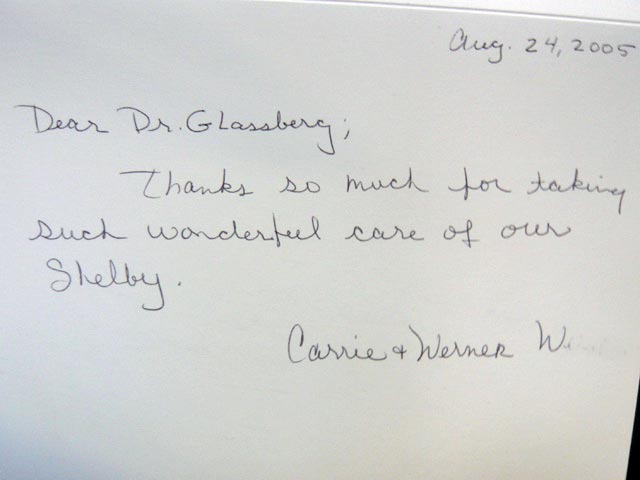 Aug. 24, 2005
Dear Dr. Glassberg;
Thanks so much for taking
such wonderful care of our
Shelby.
Carrie + Werner W